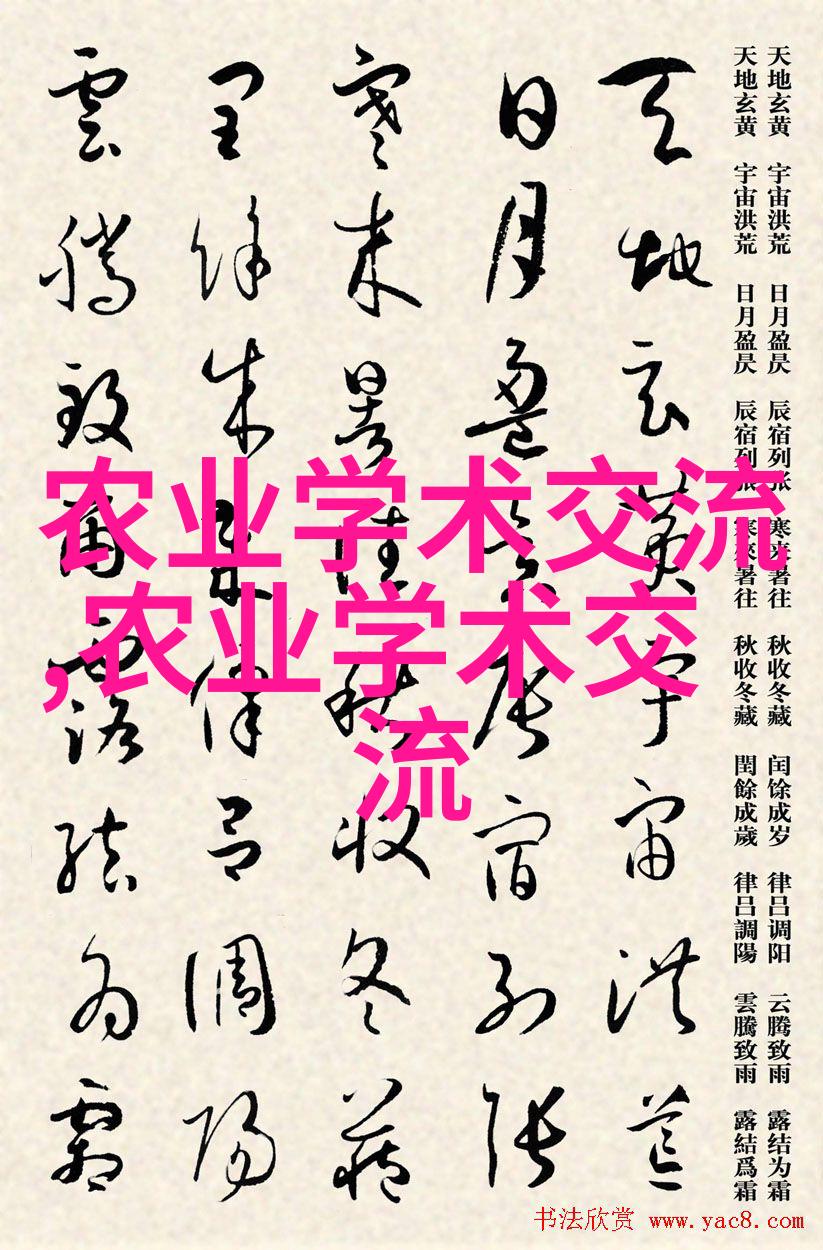 天地玄黄 宇宙洪荒 日月盈昃 辰宿列张 寒来暑往 秋收冬藏 闰馀成岁 律吕调阳 云腾致雨 露结为霜
天地玄黄 宇宙洪荒 日月盈昃 辰宿列張 寒來暑往 秋收冬藏 閏餘成歲 律呂調陽 雲騰致雨 露結爲霜
天地玄黄宇宙洪荒
日月盈昃辰宿列張
寒来暑往秋收冬藏
閏餘成歲律吕調陽
雲騰致雨露結為霜
农业学术交流
,农业学术交
流
书法欣赏 www.yac8.com